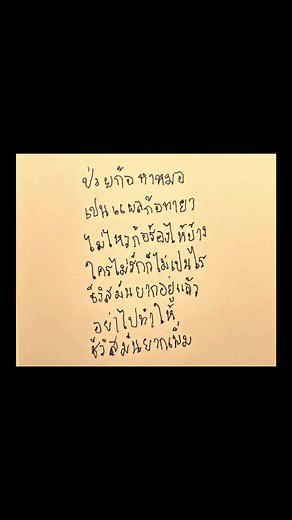 ป่วยก้อหาหมอ
เปนแผลก้อทายา
ไม่ไหวก้อร้องไห้บ้าง
ใครไม่รักก็ไม่เปนไร
ชีวิตมันยากอยู่แล้ว
อย่าไปทำให้
ชีวิตมันยากเพิ่ม